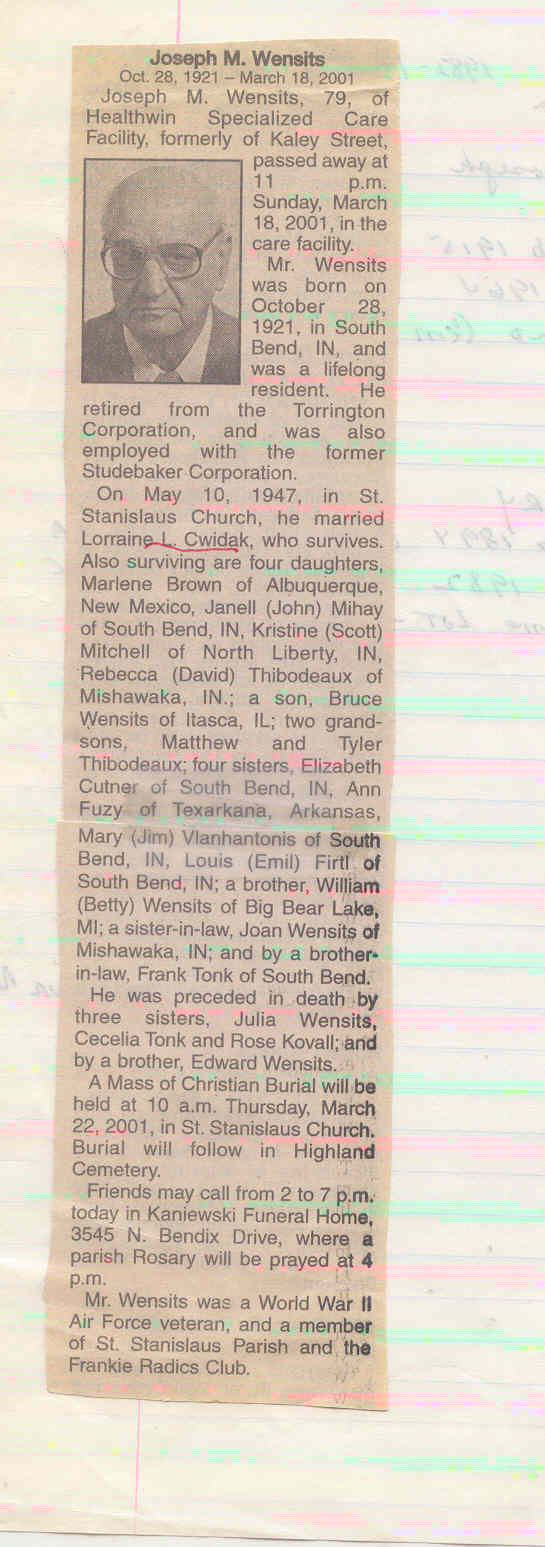 Joseph M. Wensits
Oct. 28, 1921 – March 18, 2001
Joseph M. Wensits, 79, of
Healthwin Specialized Care
Facility, formerly of Kaley Street,
passed away at
11 p.m.
Sunday, March
18, 2001, in the
care facility.
Mr. Wensits
was born on
October 28,
1921, in South
Bend, IN, and
was a lifelong
resident. He
retired from the Torrington
Corporation, and was also
employed with the former
Studebaker Corporation.
On May 10, 1947, in St.
Stanislaus Church, he married
Lorraine L. Cwidak, who survives.
Also surviving are four daughters,
Marlene Brown of Albuquerque,
New Mexico, Janell (John) Mihay
of South Bend, IN, Kristine (Scott)
Mitchell of North Liberty, IN,
Rebecca (David) Thibodeaux of
Mishawaka, IN.; a son, Bruce
Wensits of Itasca, IL; two grand-
sons, Matthew and Tyler
Thibodeaux; four sisters, Elizabeth
Cutner of South Bend, IN, Ann
Fuzy of Texarkana, Arkansas,
Mary (Jim) Vlanhantonis of South
Bend, IN, Louis (Emil) Firtl of
South Bend, IN; a brother, William
(Betty) Wensits of Big Bear Lake,
MI; a sister-in-law, Joan Wensits of
Mishawaka, IN; and by a brother-
in-law, Frank Tonk of South Bend.
He was preceded in death by
three sisters, Julia Wensits,
Cecelia Tonk and Rose Kovall; and
by a brother, Edward Wensits.
A Mass of Christian Burial will be
held at 10 a.m. Thursday, March
22, 2001, in St. Stanislaus Church.
Burial will follow in Highland
Cemetery.
Friends may call from 2 to 7 p.m.
today in Kaniewski Funeral Home,
3545 N. Bendix Drive, where a
parish Rosary will be prayed at 4
p.m.
Mr. Wensits was a World War II
Air Force veteran, and a member
of St. Stanislaus Parish and the
Frankie Radics Club.